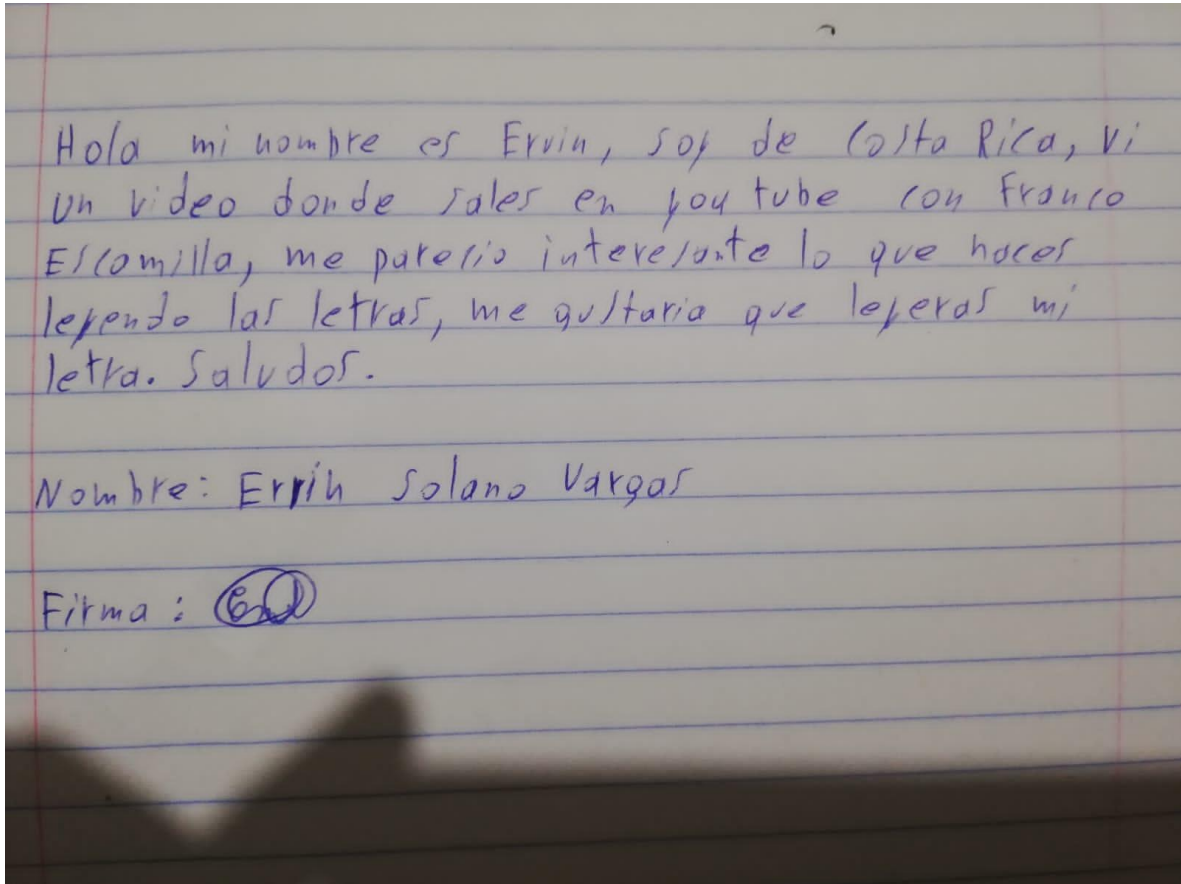 Hola mi nombre es Ervin, soy de Costa Rica, vi
un video donde sales en you tube con Franco
Escamilla, me parecio interesante lo que haces
leyendo las letras, me gustaria que leyeras mi
letra. Saludos.
Nombre: Ervin Solano Vargas
Firma: